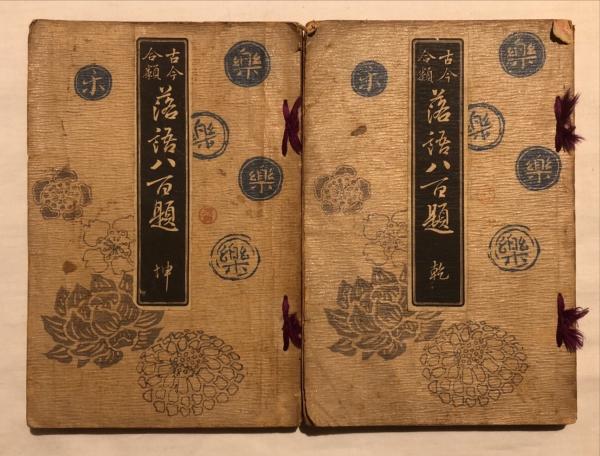 古今
合類
落語八百題
乾
樂
樂
樂
樂
古今
合類
落語八百題
坤
樂
樂
樂
樂